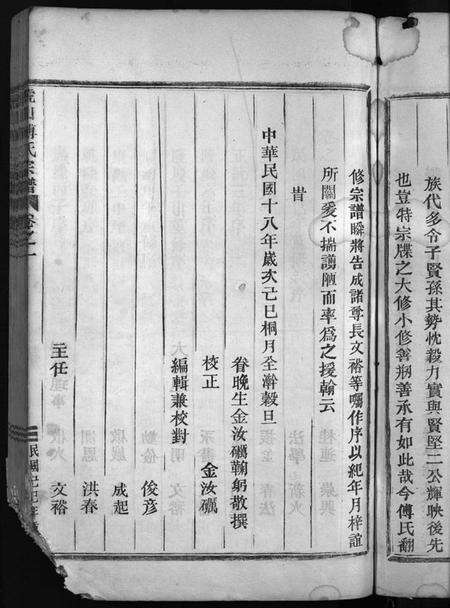 族代多令子賢孫其勢忱毅力實與賢堅二公輝映後先
也豈特宗牒之大修小修善朔善承有如此哉今傅氏翻
修宗譜瞬將告成諸尊長文裕等囑作序以紀年月梓誼
所關爰不揣譾陋而率爲之援翰云
旹
中華民國十八年歲次己巳桐月全澣穀旦
眷晚生金汝礪鞠躬敬撰
校正 金汝礪
編輯兼校對
俊彦
成起
洪春
主任 文裕
傅氏宗譜 卷之一
民國己巳年